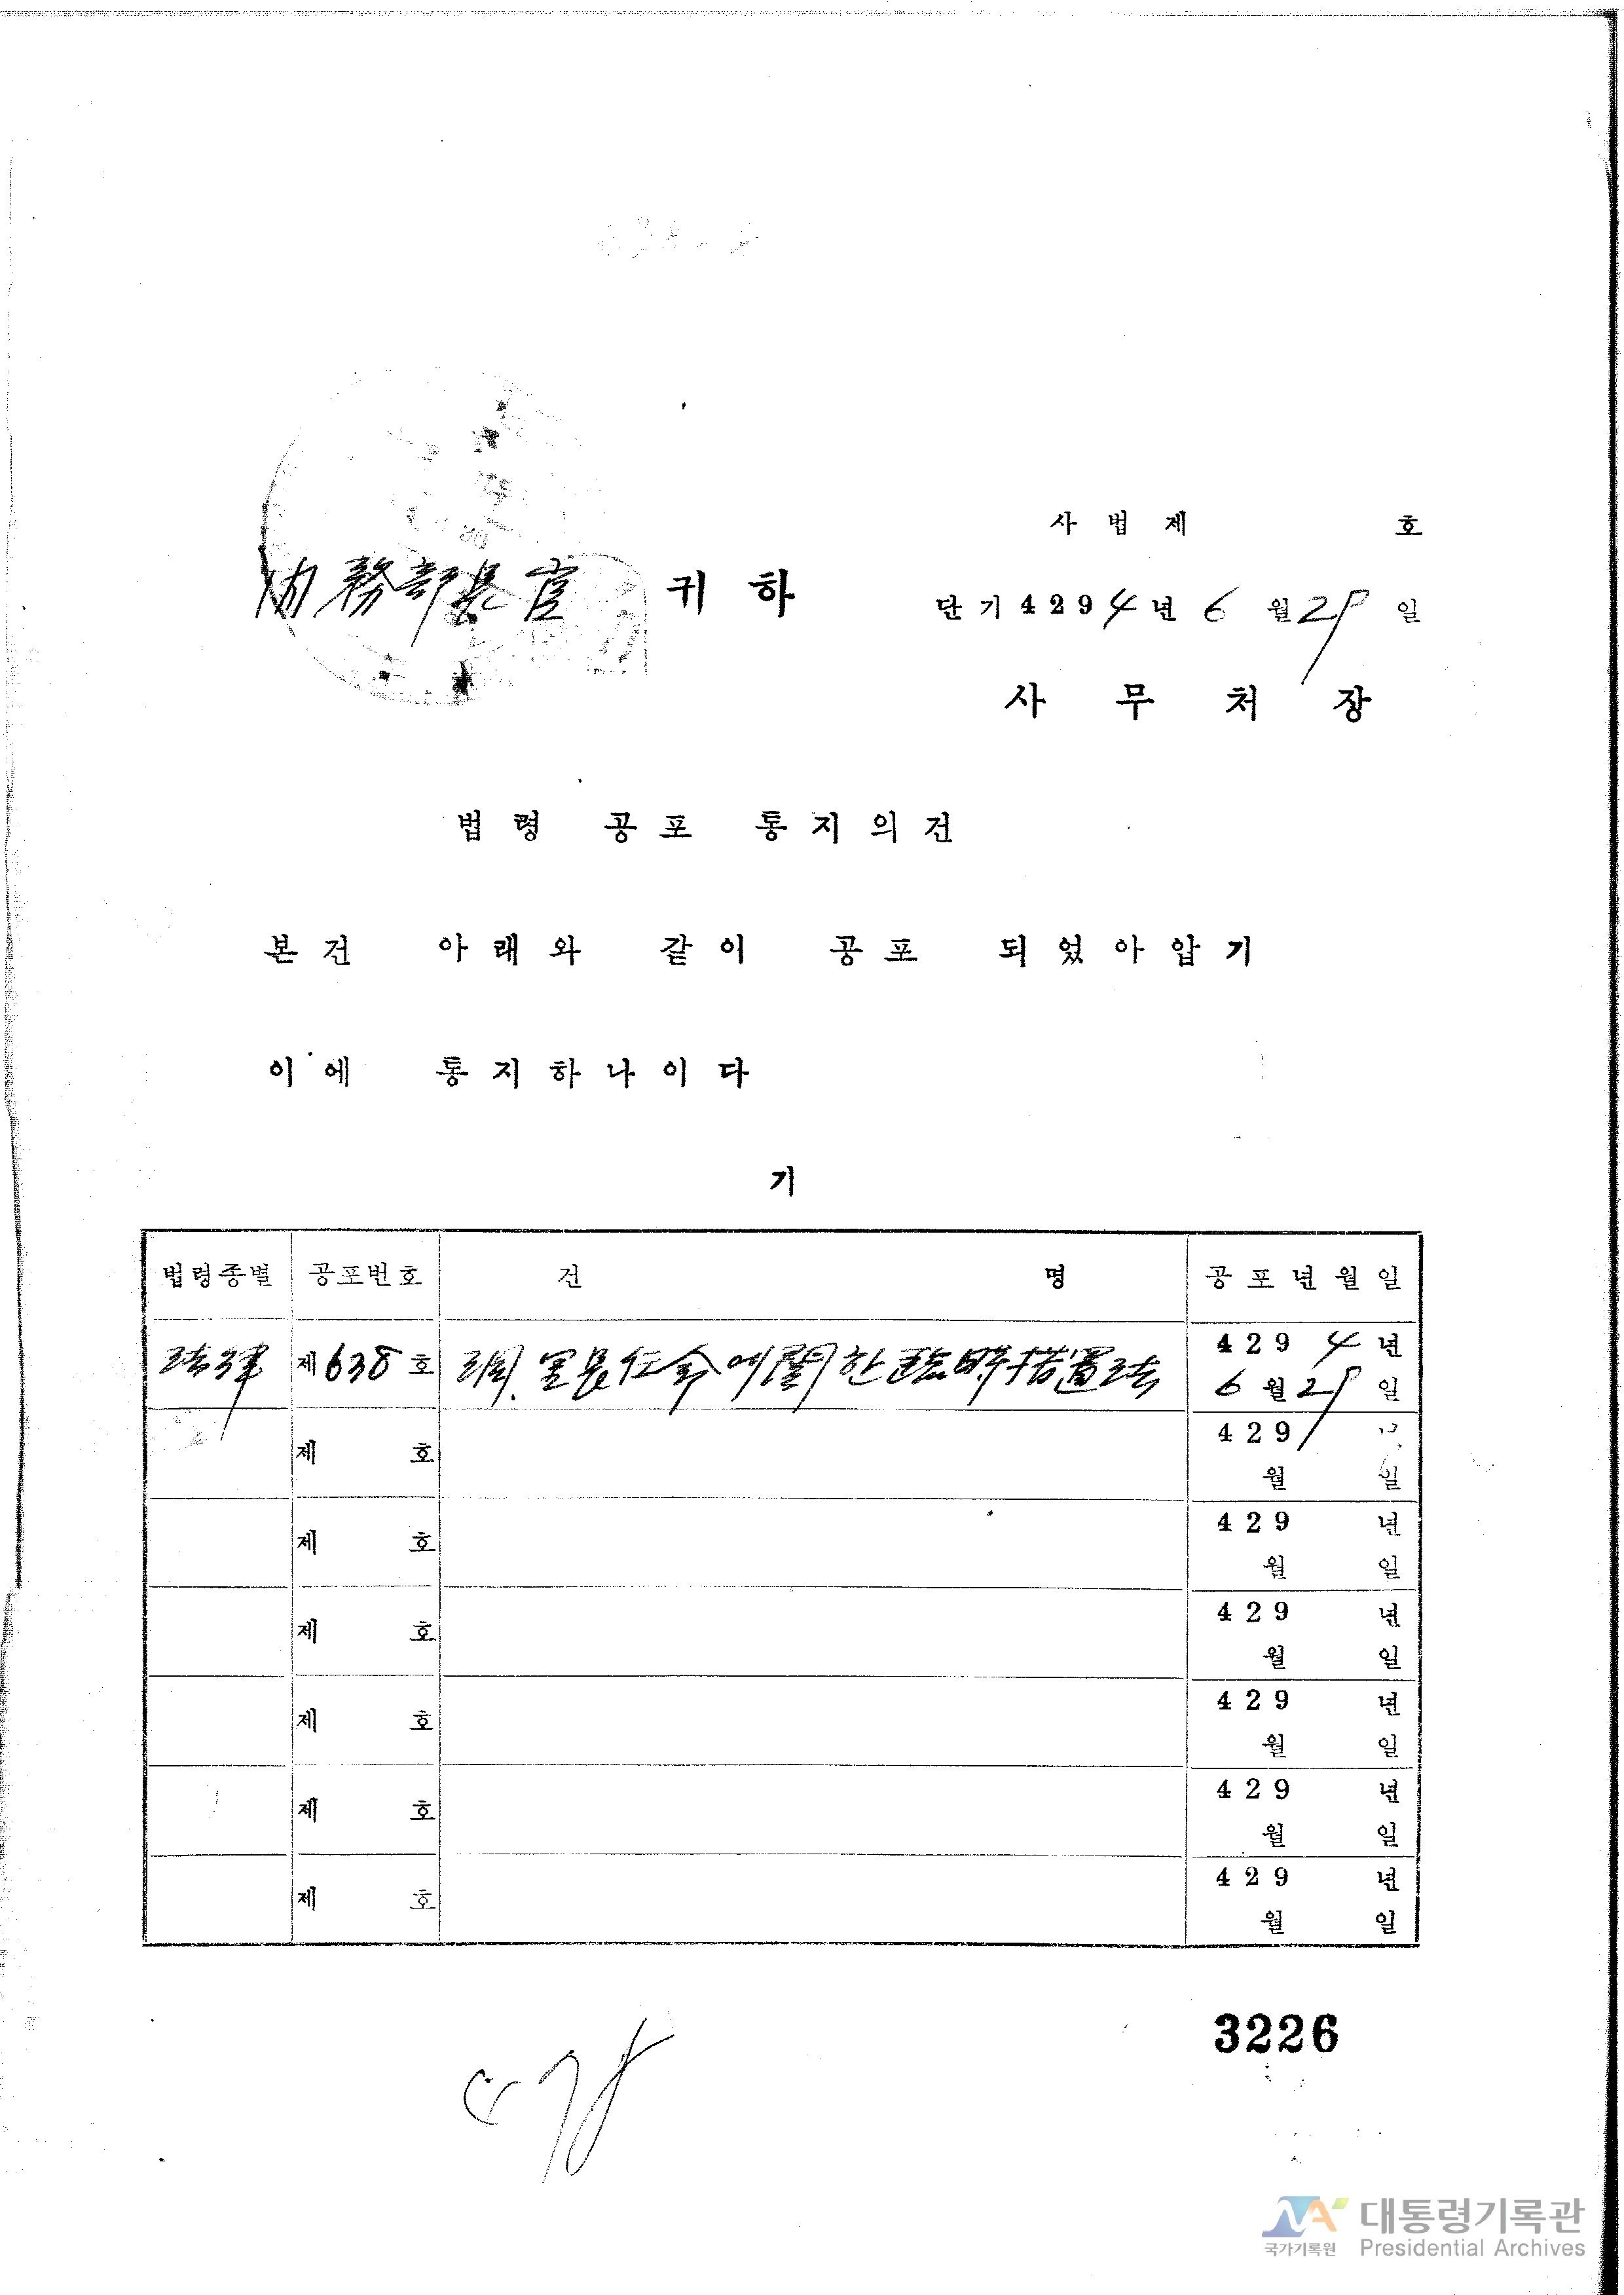 사 법 제 호
內務部長官 귀 하
단기 4294년 6월 29일
사 무 처 장
법령 공포 통지의건
본건 아래와 같이 공포 되었아압기
이에 통지하나이다
기
법령종별 공포번호 건 명 공포년월일
法律 제638호 洞.里長任命에關한臨時措置法 4294년
6월29일
제 호 429 년
월 일
제 호 429 년
월 일
제 호 429 년
월 일
제 호 429 년
월 일
제 호 429 년
월 일
제 호 429 년
월 일
3226
국가기록원 대통령기록관
Presidential Archives